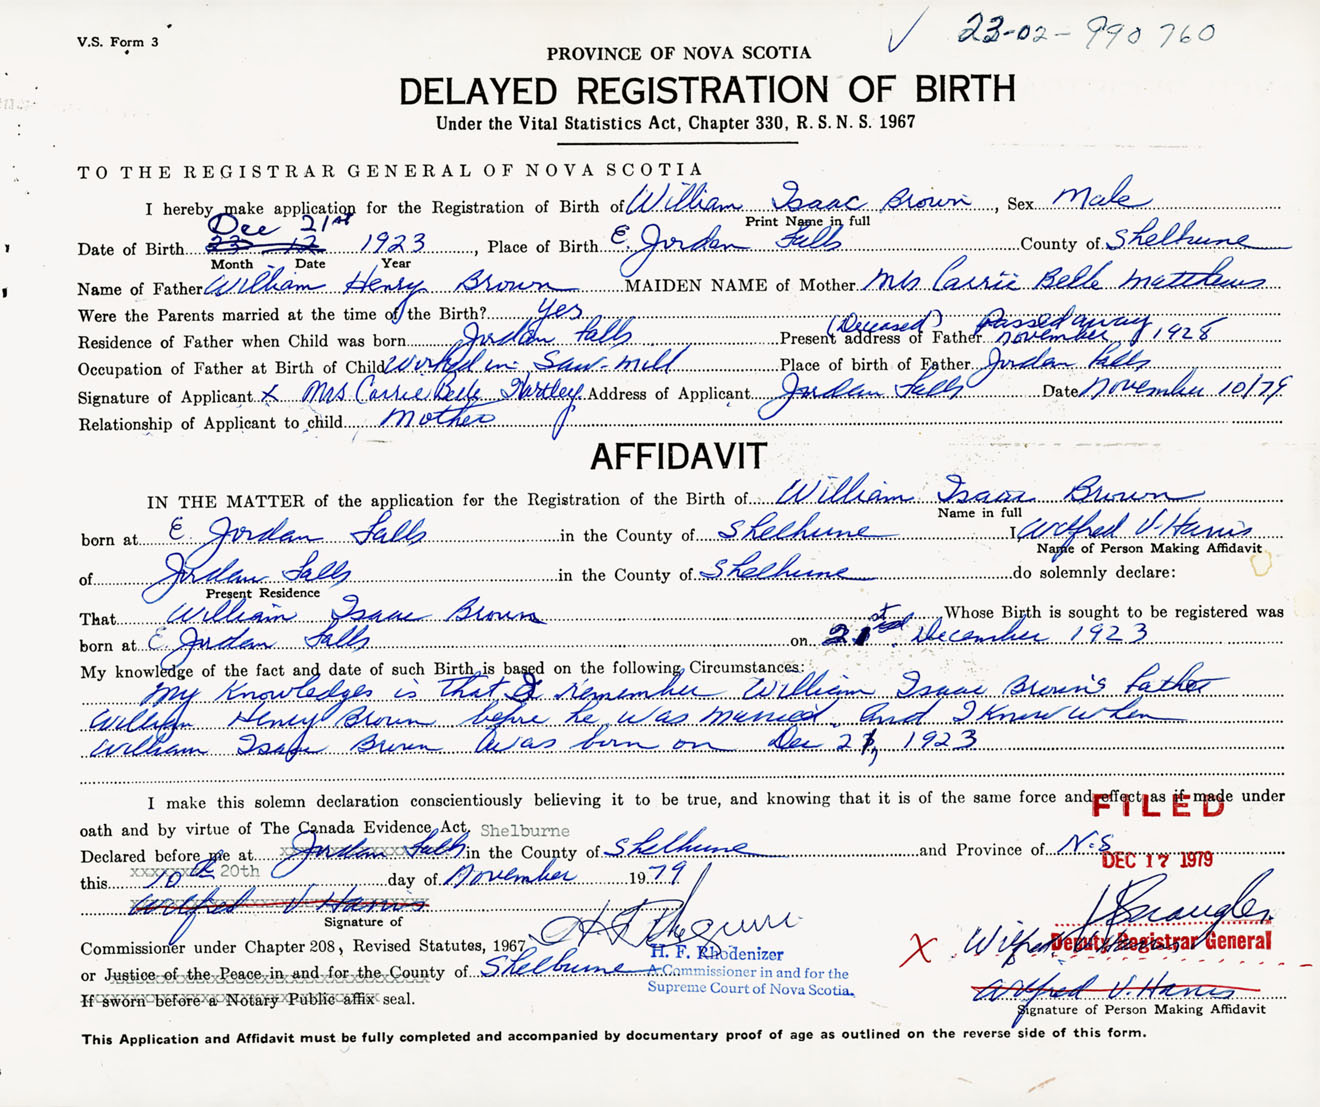 V.S. Form 3
✓ 23-02-990 760
PROVINCE OF NOVA SCOTIA
DELAYED REGISTRATION OF BIRTH
Under the Vital Statistics Act, Chapter 330, R. S. N. S. 1967
TO THE REGISTRAR GENERAL OF NOVA SCOTIA
I hereby make application for the Registration of Birth of William Isaac Brown, Sex Male
Print Name in full
Dec 21st
Date of Birth 23 12 1923, Place of Birth E. Jordan Falls County of Shelburne
Month Date Year
Name of Father William Henry Brown MAIDEN NAME of Mother Mrs Carrie Belle Matthews
Were the Parents married at the time of the Birth? Yes
(Deceased) Passed away
Residence of Father when Child was born Jordan Falls Present address of Father November 1928
Occupation of Father at Birth of Child Worked in Saw-mill Place of birth of Father Jordan Falls
Signature of Applicant x Mrs Carrie Belle Hartley. Address of Applicant Jordan Falls Date November 10/79
Relationship of Applicant to child Mother
AFFIDAVIT
IN THE MATTER of the application for the Registration of the Birth of William Isaac Brown
Name in full
born at E. Jordan Falls in the County of Shelburne I Wilfred V. Harris
Name of Person Making Affidavit
of Jordan Falls in the County of Shelburne do solemnly declare:
Present Residence
That William Isaac Brown Whose Birth is sought to be registered was
born at E. Jordan Falls on 21st December 1923
My knowledge of the fact and date of such Birth is based on the following Circumstances:
My Knowledges is that I remember William Isaac Brown's Father
William Henry Brown before he was married. And I Know when
William Isaac Brown was born on Dec 21, 1923
I make this solemn declaration conscientiously believing it to be true, and knowing that it is of the same force and effect as if made under
FILED
oath and by virtue of The Canada Evidence Act. Shelburne
Declared before me at Jordan Falls in the County of Shelburne and Province of N.S
DEC 17 1979
this 10th 20th day of November 1979
Wilfred V Harris
Signature of
Commissioner under Chapter 208, Revised Statutes, 1967
H. F. Rhodenizer
X Wilfred V Harris
Deputy Registrar General
or Justice of the Peace in and for the County of Shelburne
A Commissioner in and for the
Supreme Court of Nova Scotia.
Wilfred V. Harris
If sworn before a Notary Public affix seal.
Signature of Person Making Affidavit
This Application and Affidavit must be fully completed and accompanied by documentary proof of age as outlined on the reverse side of this form.